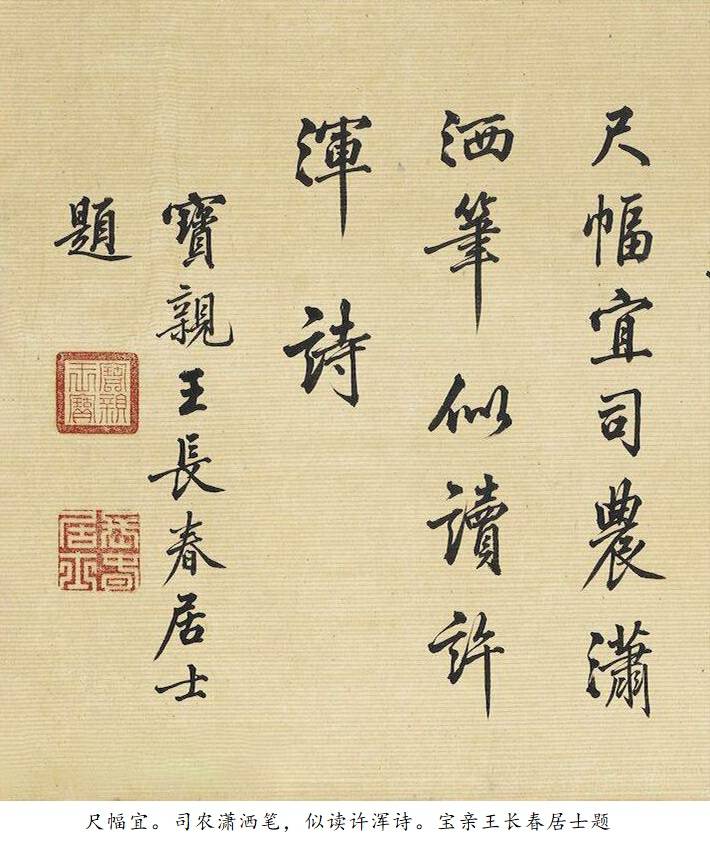 尺幅宜司農瀟
洒筆似讀許
渾詩
寶親王長春居士
題
寶親王寶
長春居士
尺幅宜。司农潇洒笔，似读许浑诗。宝亲王长春居士题